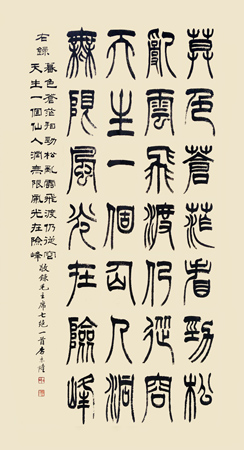 莫色蒼茫看勁松
亂雲飛渡仍從容
天生一個仙人洞
無限風光在險峰
右錄
暮色蒼茫看勁松亂雲飛渡仍從容
天生一個仙人洞無限風光在險峰
敬錄毛主席七絕一首